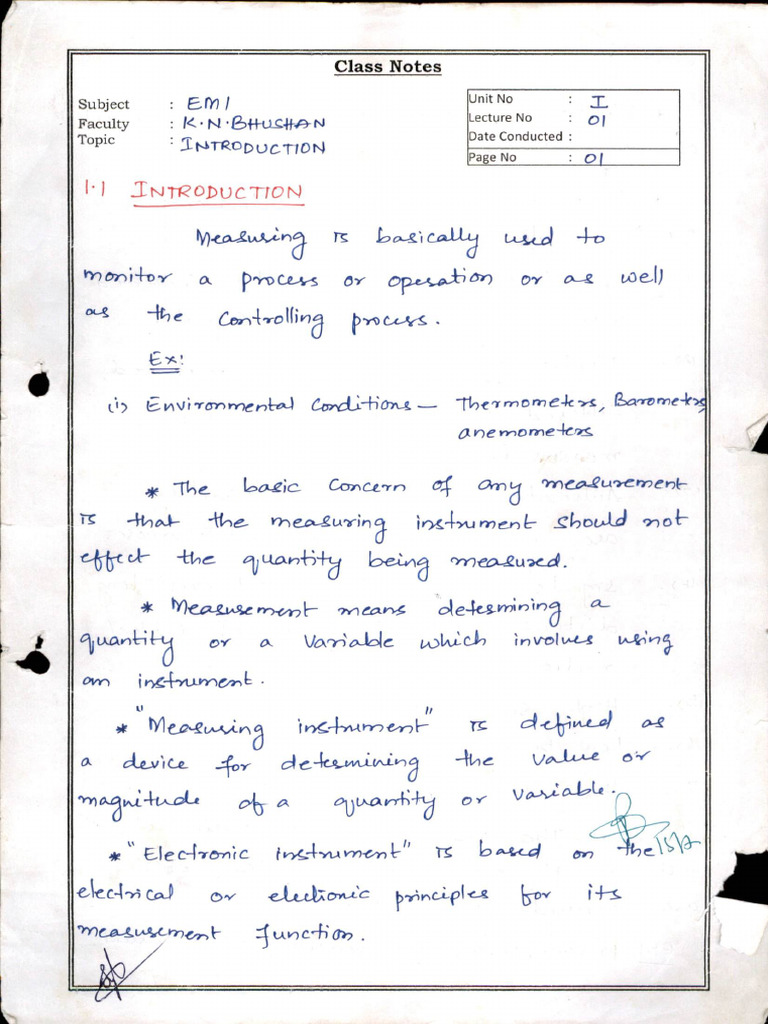 Class Notes
Subject : EMI
Faculty : K.N.BHUSHAN
Topic : INTRODUCTION
Unit No : I
Lecture No : 01
Date Conducted :
Page No : 01
1.1 INTRODUCTION
Measuring is basically used to
monitor a process or operation or as well
as the controlling process.
Ex:
(i) Environmental Conditions — Thermometers, Barometers,
anemometers
* The basic concern of any measurement
is that the measuring instrument should not
effect the quantity being measured.
* Measurement means determining a
quantity or a variable which involves using
an instrument.
* "Measuring instrument" is defined as
a device for determining the value or
magnitude of a quantity or variable.
* "Electronic instrument" is based on the
electrical or electionic principles for its
measurement function.